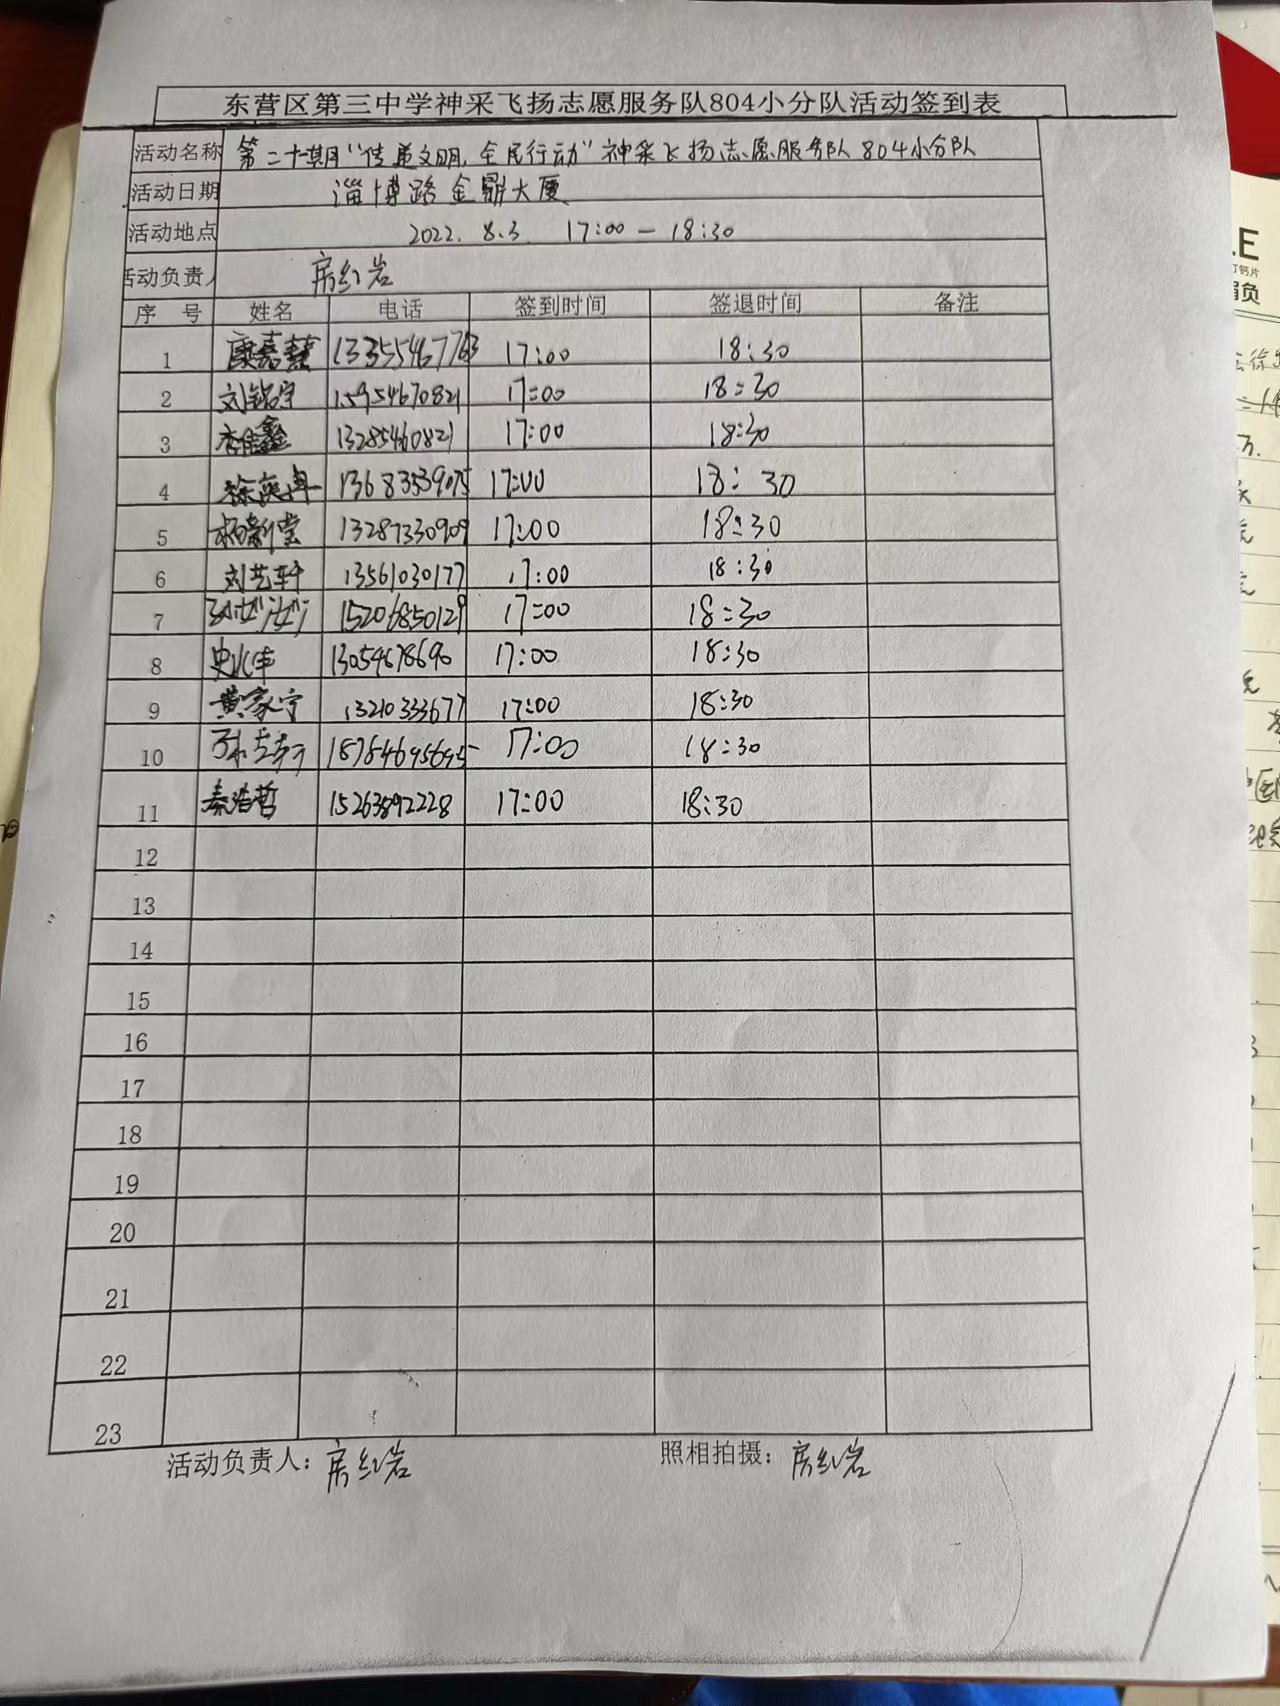 东营区第三中学神采飞扬志愿服务队804小分队活动签到表
活动名称 第二十期"传递文明,全民行动"神采飞扬志愿服务队804小分队
活动日期 淄博路金鼎大厦
活动地点 2022.8.3 17:00—18:30
活动负责人 房红岩
序号 姓名 电话 签到时间 签退时间 备注
1 康嘉慧 13355467763 17:00 18:30
2 刘铭宇 15954670821 17:00 18:30
3 李佳鑫 13285460821 17:00 18:30
4 徐奕冉 13683539075 17:00 18:30
5 杨新莹 13287330909 17:00 18:30
6 刘艺轩 13561030177 17:00 18:30
7 15206850129 17:00 18:30
8 13054678690 17:00 18:30
9 黄家宁 13210333677 17:00 18:30
10 18764695695 17:00 18:30
11 秦浩哲 15263892228 17:00 18:30
12
13
14
15
16
17
18
19
20
21
22
23
活动负责人:房红岩 照相拍摄:房红岩